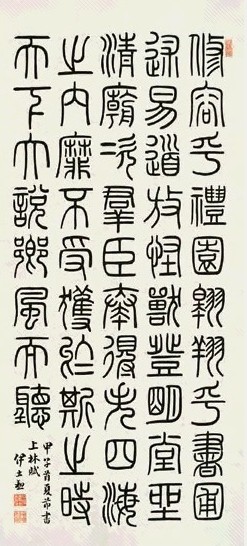 修容乎禮園翱翔乎書圃
述易道放怪獸登明堂坐
清廟次羣臣奏得失四海
之內靡不受獲於斯之時
天下大說鄉風而聽
甲子首夏節書
上林賦
伊立勳